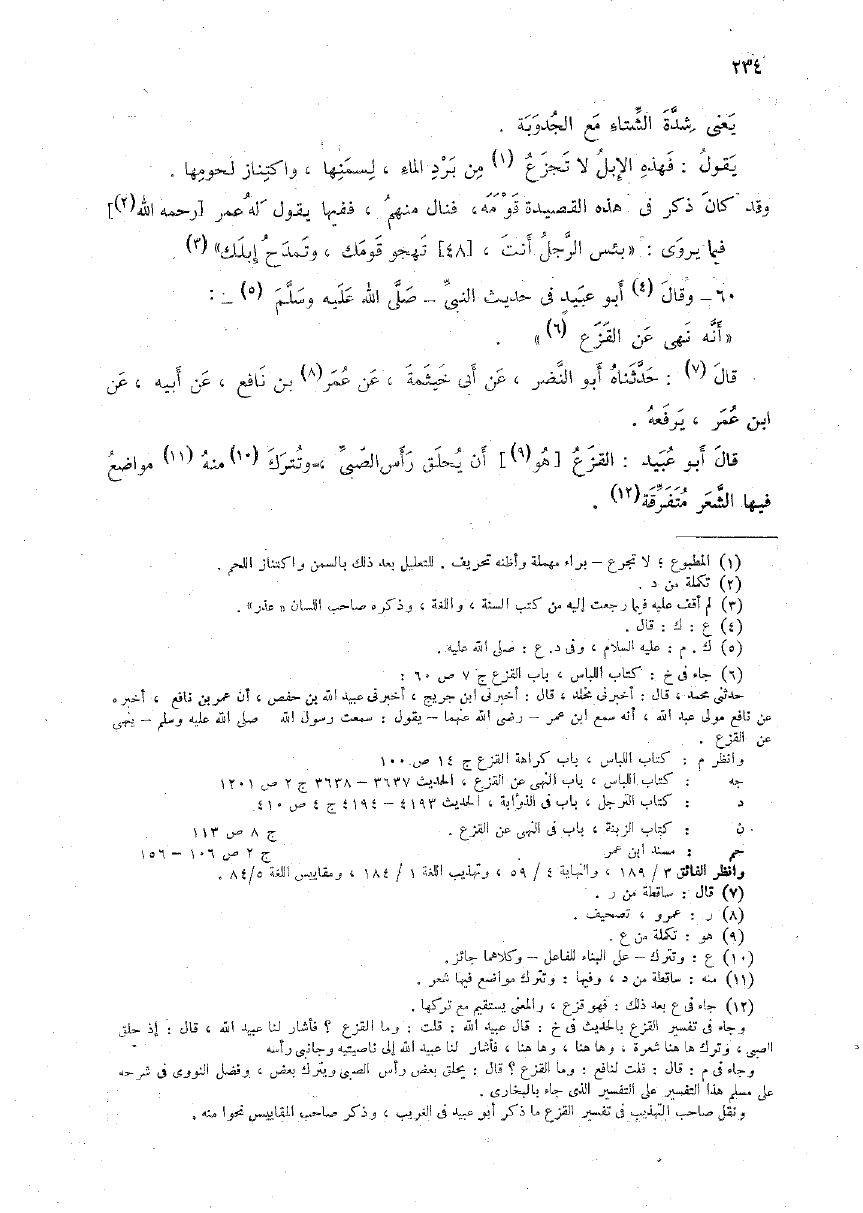 ٢٣٤
يَعنى شِدَّةَ الشِّتاءِ مَع الجُدُوبَة .
يَقولُ : فَهذِه الإبلُ لا تَجزَعُ (١) مِن بَرْدِ الماءِ ، لِسمَنِها ، واكتِناز لحومِها .
وقد كانَ ذكر فى هذه القصيدة قَوْمَه ، فنال منهمُ ، ففيها يقول لهُ عمر [رحمه الله(٢)]
فيما يروَى : «بئس الرَّجلُ أَنتَ ، [٤٨] تَهجو قَومَك ، وتَمدَحُ إبلَك» (٣)
٦٠ــ وقالَ (٤) أَبو عبَيدٍ فى حديث النبىِّ ــ صَلَّى الله عَلَيه وسَلَّمَ (٥) ــ :
«أَنَّه نَهى عَن القَزَع (٦)» .
قالَ (٧) : حَدَّثَناهُ أَبو النَّضر ، عَن أَبى خَيثَمةَ ، عَن عُمَر(٨) بن نَافع ، عَن أَبيه ، عَن
ابن عُمَر ، يَرفَعهُ .
قالَ أَبو عُبَيد : القزَعُ [هُو(٩)] أَن يُحلَق رَأس الصَّبىِّ ، وتُترَكَ (١٠) منهُ (١١) مواضعُ
فيها الشَّعَر مُتَفَرِّقَة(١٢) .
(١) المطبوع ؛ لا تجرع – براء مهملة وأظنه تحريف . للتعليل بعد ذلك بالسمن واكتناز اللحم .
(٢) تكلة من د .
(٣) لم أقف عليه فيما رجعت إليه من كتب السنة ، واللغة ، وذكره صاحب اللسان «عذر» .
(٤) ع : ك : قال .
(٥) ك . م : عليه السلام ، وفى د. ع : صلى الله عليه .
(٦) جاء فى خ : كتاب اللباس ، باب القزع ج ٧ ص ٦٠ :
حدثنى محمد ، قال : أخبرنى مخلد ، قال : أخبرنى ابن جريج ، أخبرنى عبيد الله بن حفص ، أن عمر بن نافع ، أخبره
عن نافع مولى عبد الله ، أنه سمع ابن عمر – رضى الله عنهما – يقول : سمعت رسول الله صلى الله عليه وسلم – ينهى
عن القزع .
وانظر م : كتاب اللباس ، باب كراهة القزع ج ١٤ ص ١٠٠
جه : كتاب اللباس ، باب النهى عن القزع ، الحديث ٣٦٣٧ – ٣٦٣٨ ج ٢ ص ١٢٠١
د : كتاب الترجل ، باب فى الذؤابة ، الحديث ٤١٩٣ – ٤١٩٤ ج ٤ ص ٤١٠
ن : كتاب الزينة ، باب فى النهى عن القزع . ج ٨ ص ١١٣
حم : مسند ابن عمر ج ٢ ص ١٠٦ – ١٥٦
وانظر الفائق ٣ / ١٨٩ ، والنهاية ٤ / ٥٩ ، وتهذيب اللغة ١ / ١٨٤ ، ومقاييس اللغة ٨٤/٥ .
(٧) قال : ساقطة من ر .
(٨) ر : عمرو ، تصحيف .
(٩) هو : تكلة من ع .
(١٠) ع : وتترك – على البناء للفاعل – وكلاهما جائز .
(١١) منه : ساقطة من د ، وفيها : وتترك مواضع فيها شعر .
(١٢) جاء فى ع بعد ذلك : فهو قزع ، والمعنى يستقيم مع تركها .
وجاء فى تفسير القزع بالحديث فى خ : قال عبيد الله : قلت : وما القزع ؟ فأشار لنا عبيد الله ، قال : إذ حلق
الصبى ، وترك ها هنا شعرة ، وها هنا ، وها هنا ، فأشار لنا عبيد الله إلى ناصيته وجانبى رأسه
وجاء فى م : قال : قلت لنافع : وما القزع ؟ قال : يحلق بعض رأس الصبى ويترك بعض ، وفضل النووى فى شرحه
على مسلم هذا التفسير على التفسير الذى جاء بالبخارى .
ونقل صاحب التهذيب فى تفسير القزع ما ذكر أبو عبيد فى الغريب ، وذكر صاحب المقاييس نحوا منه .